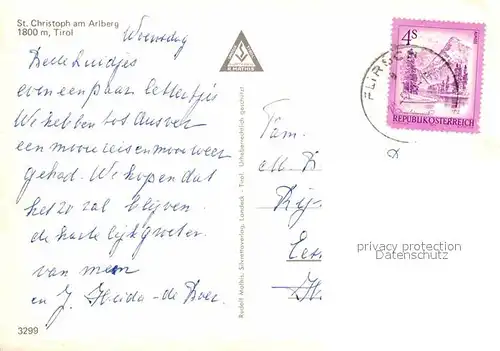 St. Christoph am Arlberg
1800 m, Tirol
Woensdag
Beste Luidjes
even een paar lettertjes
We hebben tot dusver
een mooie reis en mooi weer
gehad. We hopen dat
het zo zal blijven.
de hartelijke groeten
van mem
en J. de Boer.
3299
Rudolf Mathis, Silvrettaverlag, Landeck - Tirol. Urheberrechtlich geschützt
R. MATHIS
4S
REPUBLIK ÖSTERREICH
FLIRSCH
Fam.
privacy protection
Datenschutz